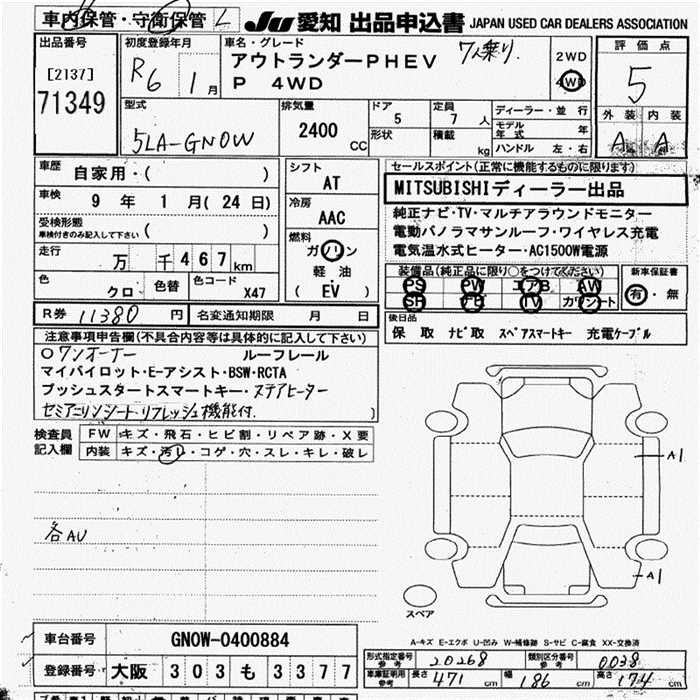 車内保管・守衛保管 L
JU 愛知 出品申込書 JAPAN USED CAR DEALERS ASSOCIATION
出品番号
[2137]
71349
初度登録年月
R6 1月
車名・グレード
アウトランダーPHEV 7人乗り.
P 4WD
2WD
4WD
評価点
5
外装 内装
A A
型式
5LA-GN0W
排気量
2400 CC
ドア
5
形状
定員
7 人
積載
kg
ディーラー・並行
モデル年式 年
ハンドル 左・右
車歴
自家用・( )
車検
9 年 1 月( 24 日)
受検形態
車検付きのみ記入して下さい ( )
走行
万 千467km
色
クロ
色替
色コード
X47
シフト
AT
冷房
AAC
燃料
ガソリン
軽油
( EV )
セールスポイント(正常に機能するものに限ります)
MITSUBISHIディーラー出品
純正ナビ・TV・マルチアラウンドモニター
電動パノラマサンルーフ・ワイヤレス充電
電気温水式ヒーター・AC1500W電源
装備品(純正品に限り○をつけてください)
PS PW エアB AW
SR ナビ TV カワシート
新車保証書
有・無
R券 11380 円
名変通知期限 月 日
後日品
保 取 ナビ取 スペアスマートキー 充電ケーブル
注意事項申告欄(不具合内容等は具体的に記入して下さい)
○ワンオーナー ルーフレール
マイパイロット・E-アシスト・BSW・RCTA
プッシュスタートスマートキー・ステアヒーター
セミアニリンシート・リフレッシュ機能付. )
検査員記入欄
FW キズ・飛石・ヒビ割・リペア跡・X要
内装 キズ・汚レ・コゲ・穴・スレ・キレ・破レ
各AU
A1
A1
スペア
A-キズ E-エクボ U-凹み W-補修跡 S-サビ C-腐食 XX-交換済
車台番号
GN0W-0400884
登録番号
大阪 303 も 3377
形式指定番号 参考 20268
類別区分番号 参考 0038
車庫証明用 参考 長さ 471 cm 幅 186 cm 高さ 174 cm